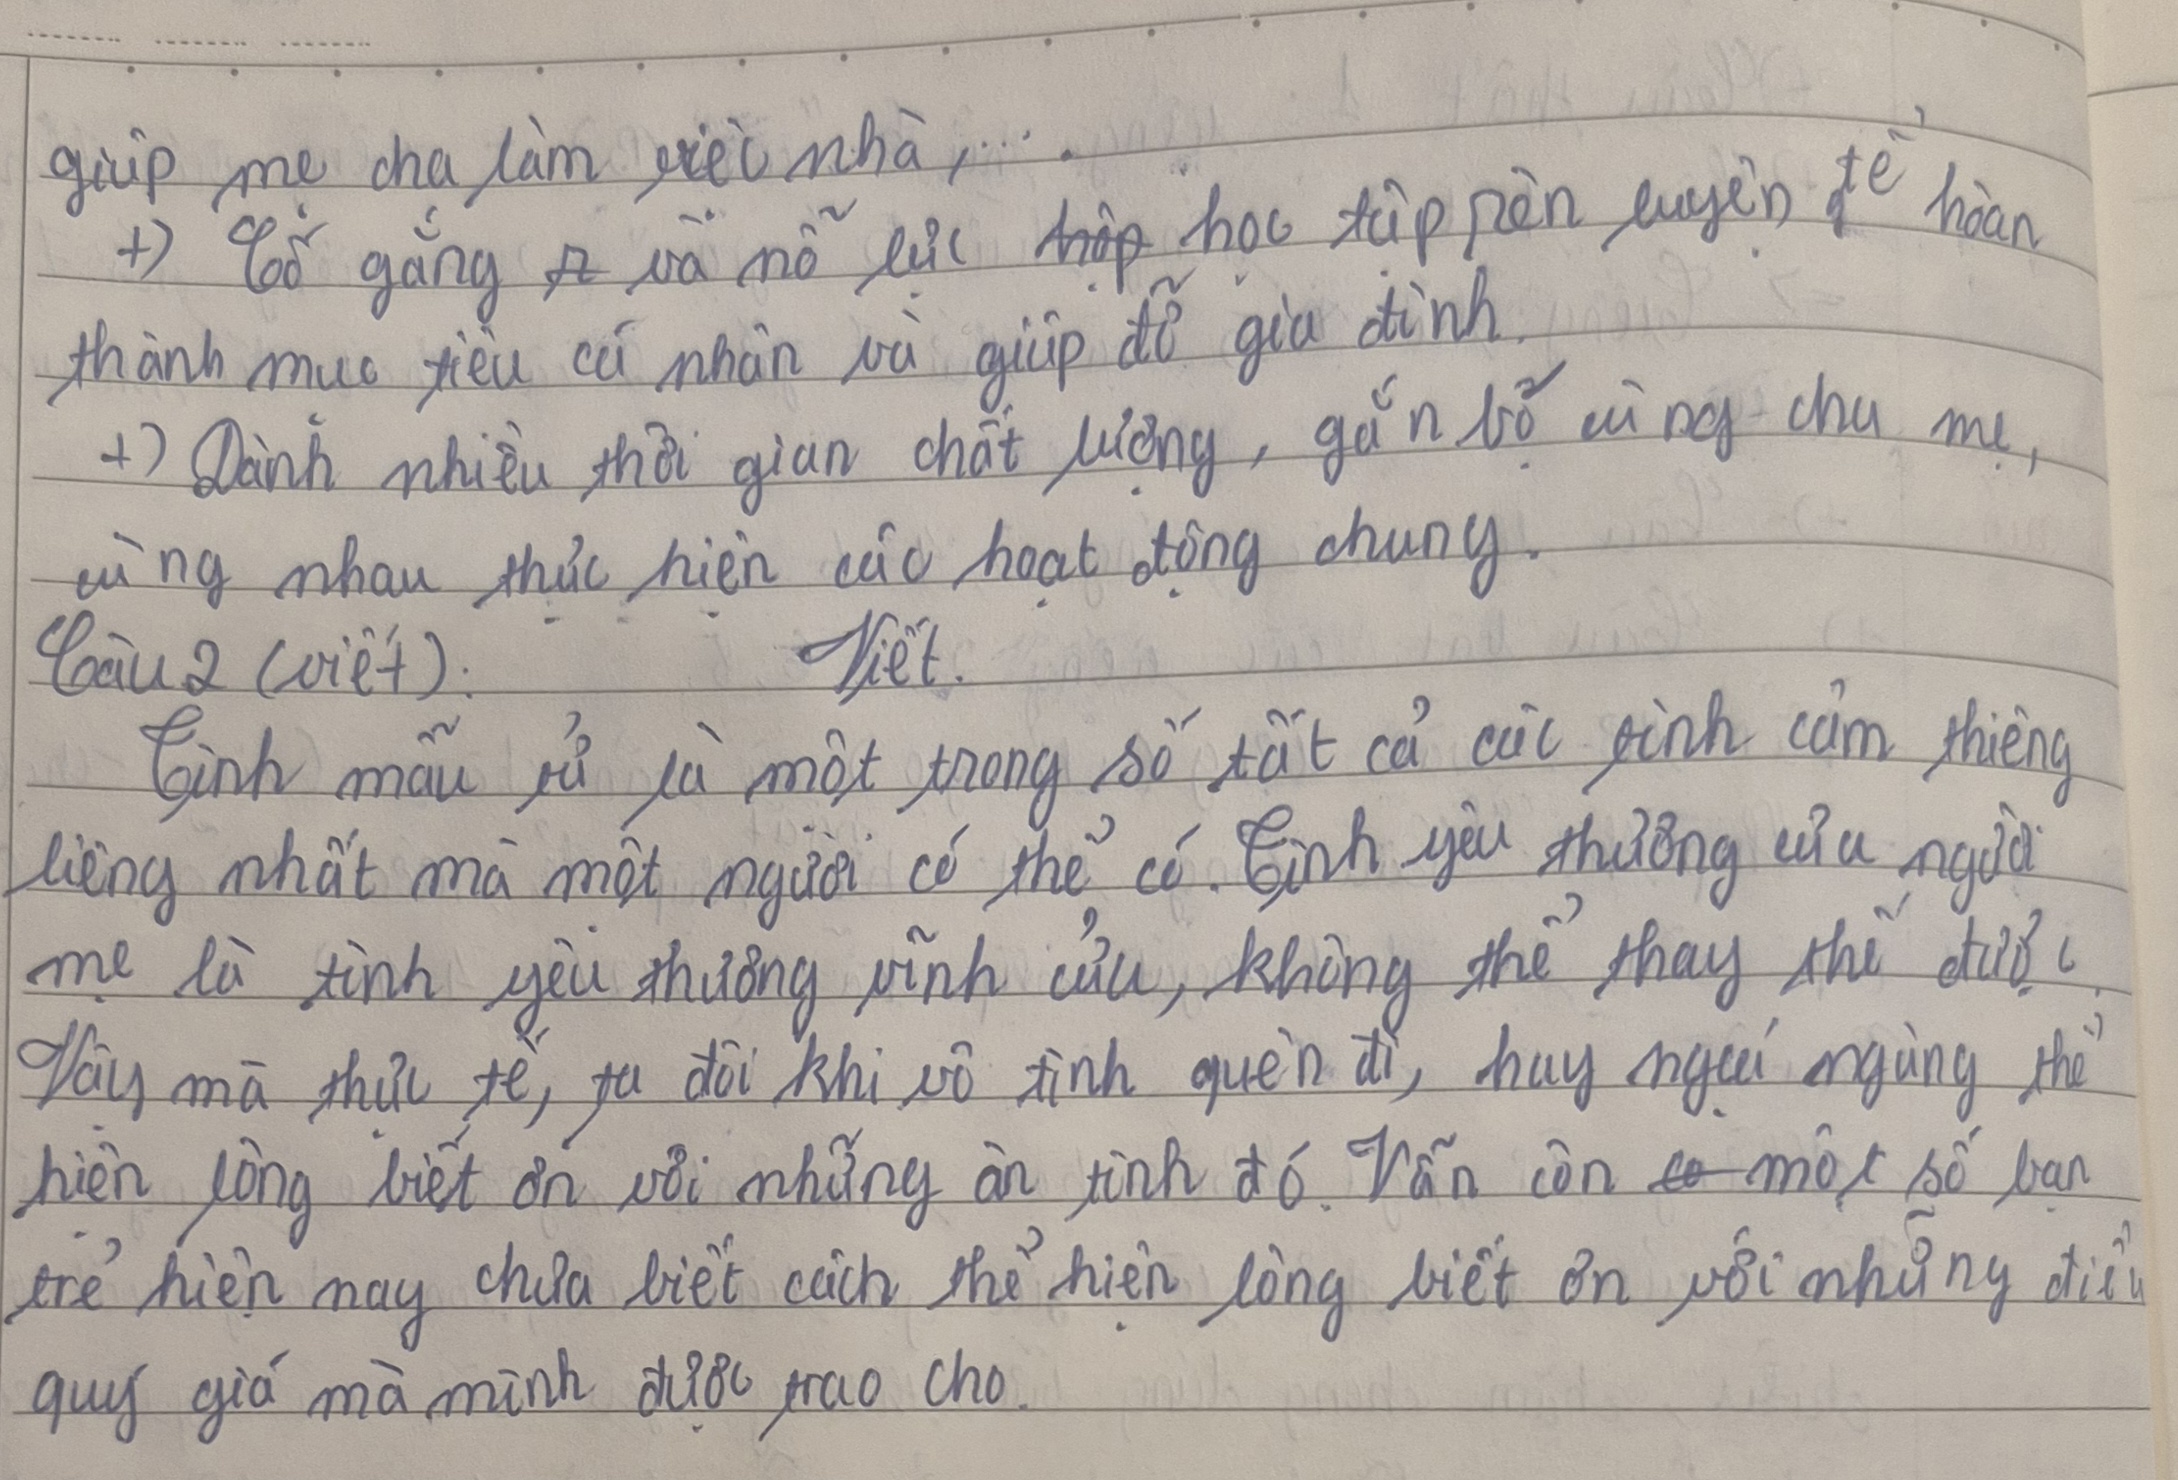 giúp mẹ cha làm việc nhà,....
+) Cố gắng và nỗ lực học tập, rèn luyện để hoàn
thành mục tiêu cá nhân và giúp đỡ gia đình.
+) Dành nhiều thời gian chất lượng, gắn bó cùng cha mẹ,
cùng nhau thực hiện các hoạt động chung.
Câu 2 (viết): Viết.
Tình mẫu tử là một trong số tất cả các tình cảm thiêng
liêng nhất mà một người có thể có. Tình yêu thương của người
mẹ là tình yêu thương vĩnh cửu, không thể thay thế được.
Vậy mà thực tế, ta đôi khi vô tình quên đi, hay ngại ngùng thể
hiện lòng biết ơn với những ân tình đó. Vẫn còn một số bạn
trẻ hiện nay chưa biết cách thể hiện lòng biết ơn với những điều
quý giá mà mình được trao cho.